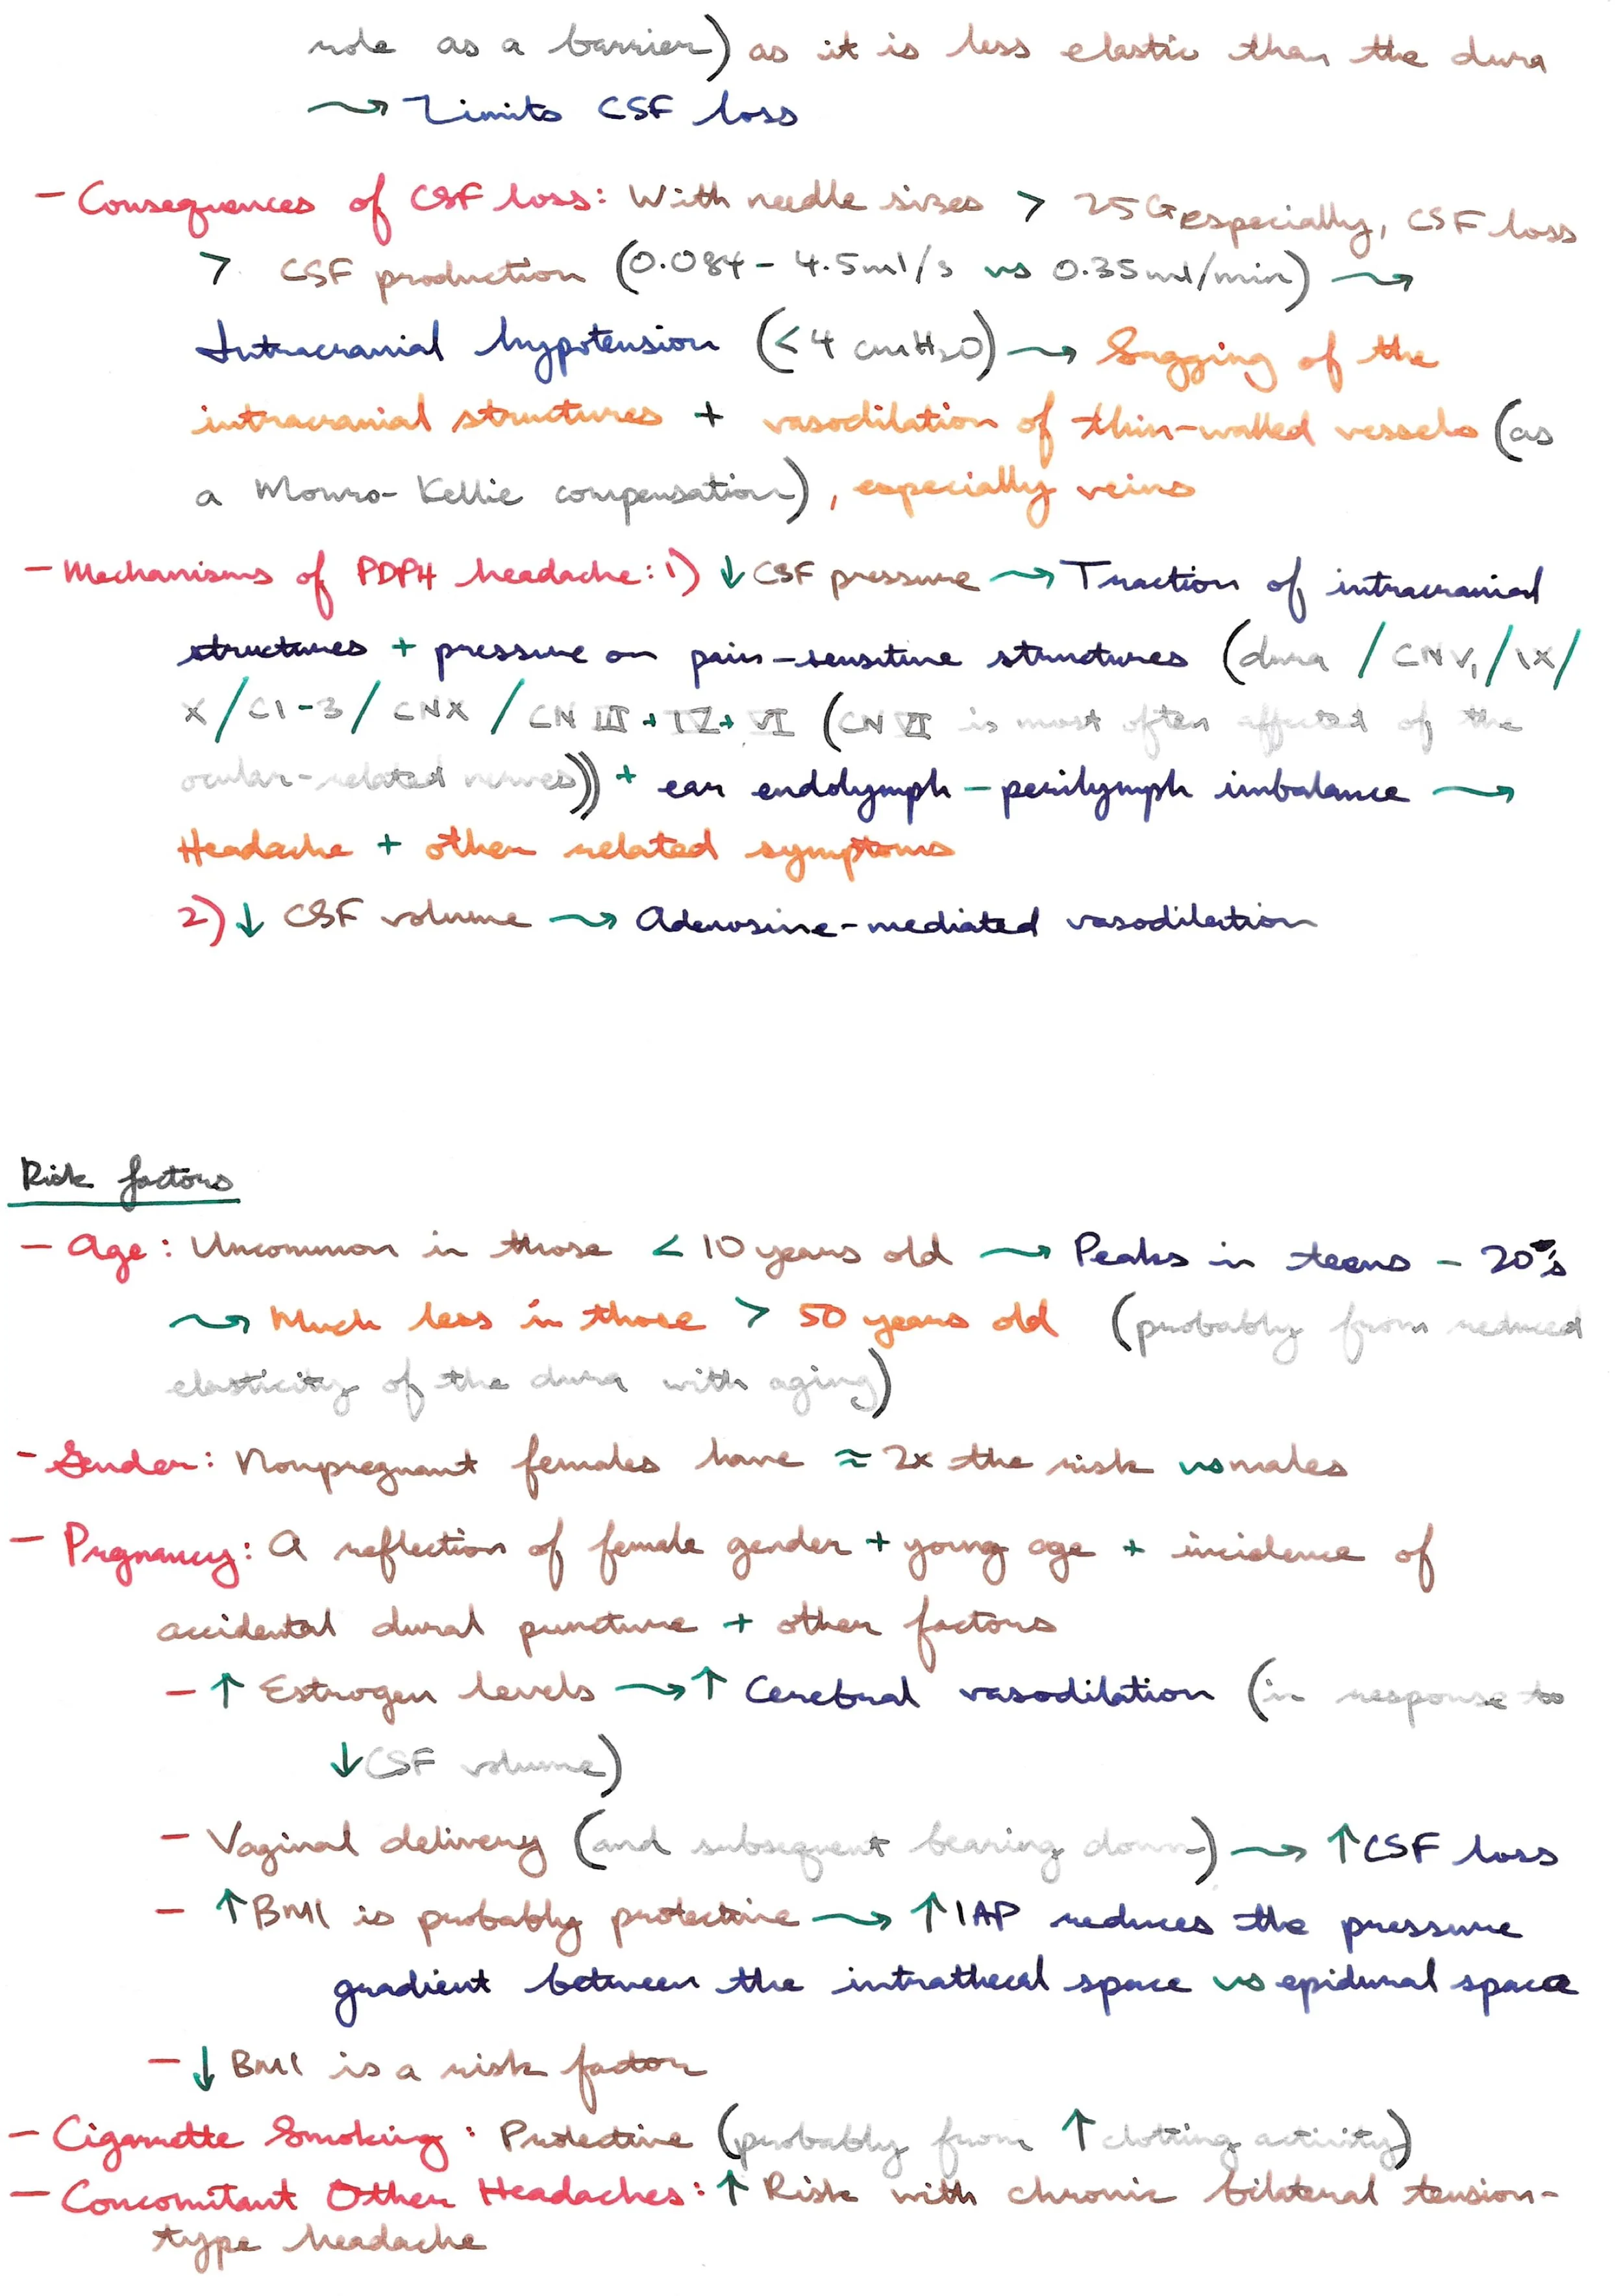 role as a barrier) as it is less elastic than the dura
→ Limits CSF loss
- Consequences of CSF loss: With needle sizes > 25G especially, CSF loss
> CSF production (0.084 - 4.5ml/s vs 0.35ml/min) →
Intracranial hypotension (<4 cmH2O) → Sagging of the
intracranial structures + vasodilation of thin-walled vessels (as
a Monro-Kellie compensation), especially veins
- Mechanisms of PDPH headache: 1) ↓ CSF pressure → Traction of intracranial
structures + pressure on pain-sensitive structures (dura / CNV₁ / IX /
X / C1-3 / CNX / CN III + IV + VI (CN VI is most often affected of the
ocular-related nerves)) + ear endolymph - perilymph imbalance →
Headache + other related symptoms
2) ↓ CSF volume → Adenosine-mediated vasodilation
Risk factors
- Age: Uncommon in those < 10 years old → Peaks in teens - 20's
→ Much less in those > 50 years old (probably from reduced
elasticity of the dura with aging)
- Gender: Nonpregnant females have ≈ 2x the risk vs males
- Prgnancy: A reflection of female gender + young age + incidence of
accidental dural puncture + other factors
- ↑ Estrogen levels → ↑ Cerebral vasodilation (in response to
↓ CSF volume)
- Vaginal delivery (and subsequent bearing down) → ↑ CSF loss
- ↑ BMI is probably protective → ↑ IAP reduces the pressure
gradient between the intrathecal space vs epidural space
- ↓ BMI is a risk factor
- Cigarrette Smoking: Protective (probably from ↑ clotting activity)
- Concomitant Other Headaches: ↑ Risk with chronic bilateral tension-
type headache